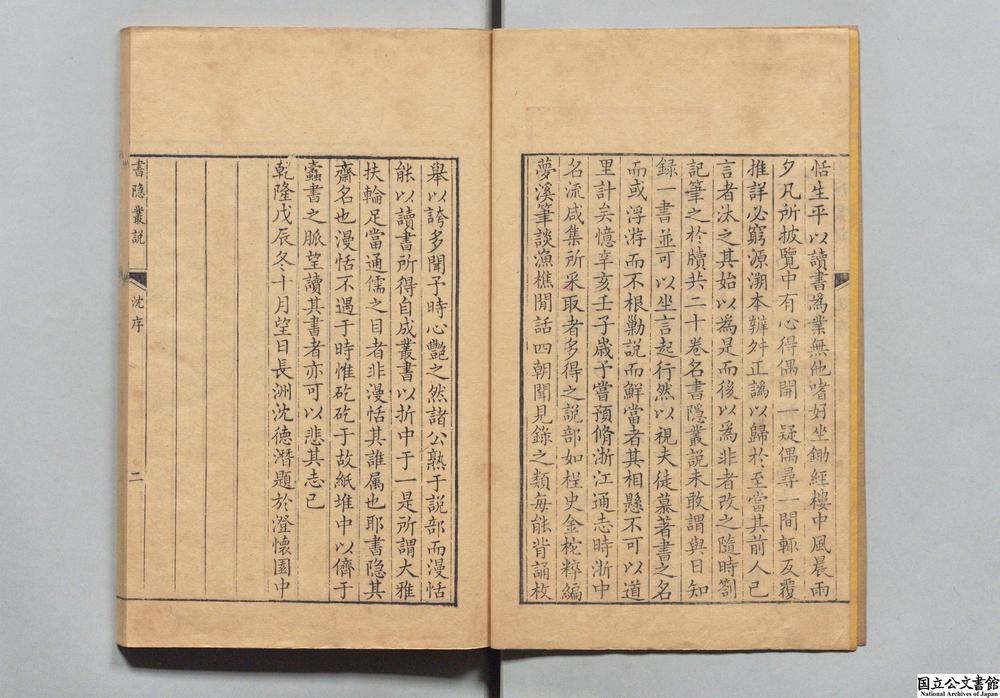 恬生平以讀書為業無他嗜好坐鋤經樓中風晨雨
夕凡所披覽中有心得偶開一疑偶尋一間輒反覆
推詳必窮源溯本辨舛正譌以歸於至當其前人已
言者汰之其始以為是而後以為非者改之隨時劄
記筆之於牘共二十卷名書隱叢說未敢謂與日知
録一書並可以坐言起行然以視夫徒慕著書之名
而或浮游而不根勦說而鮮當者其相懸不可以道
里計矣憶辛亥壬子歲予嘗預脩浙江通志時浙中
名流咸集所采取者多得之說部如桯史金柁粹編
夢溪筆談漁樵閒話四朝聞見錄之類每能背誦枚
舉以誇多聞予時心艷之然諸公熟于説部而漫恬
能以讀書所得自成叢書以折中于一是所謂大雅
扶輪足當通儒之目者非漫恬其誰屬也耶書隐其
齋名也漫恬不遇于時惟矻矻于故紙堆中以儕于
蠹書之脈望讀其書者亦可以悲其志已
乾隆戊辰冬十月望日長洲沈德潛題於澄懷園中
書隐叢説
沈序
二
国立公文書館
National Archives of Japan